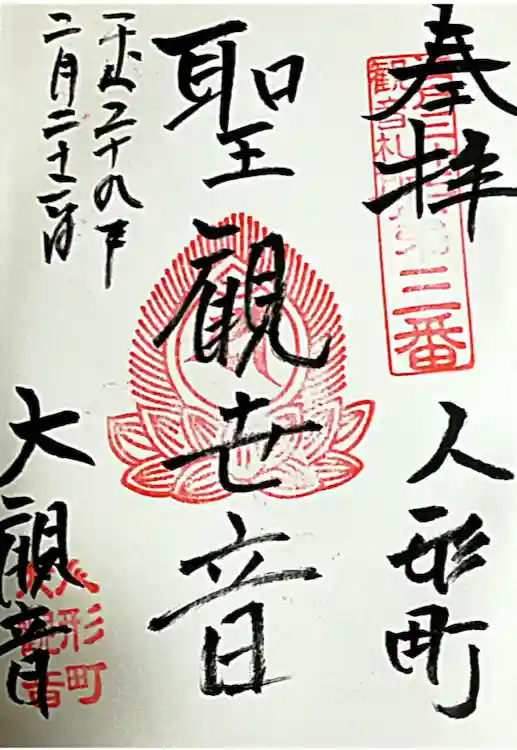 奉拝
人形町
観音札所第三番
聖観世音
平成二十九年
二月二十二日
大観音
人形町
大観音